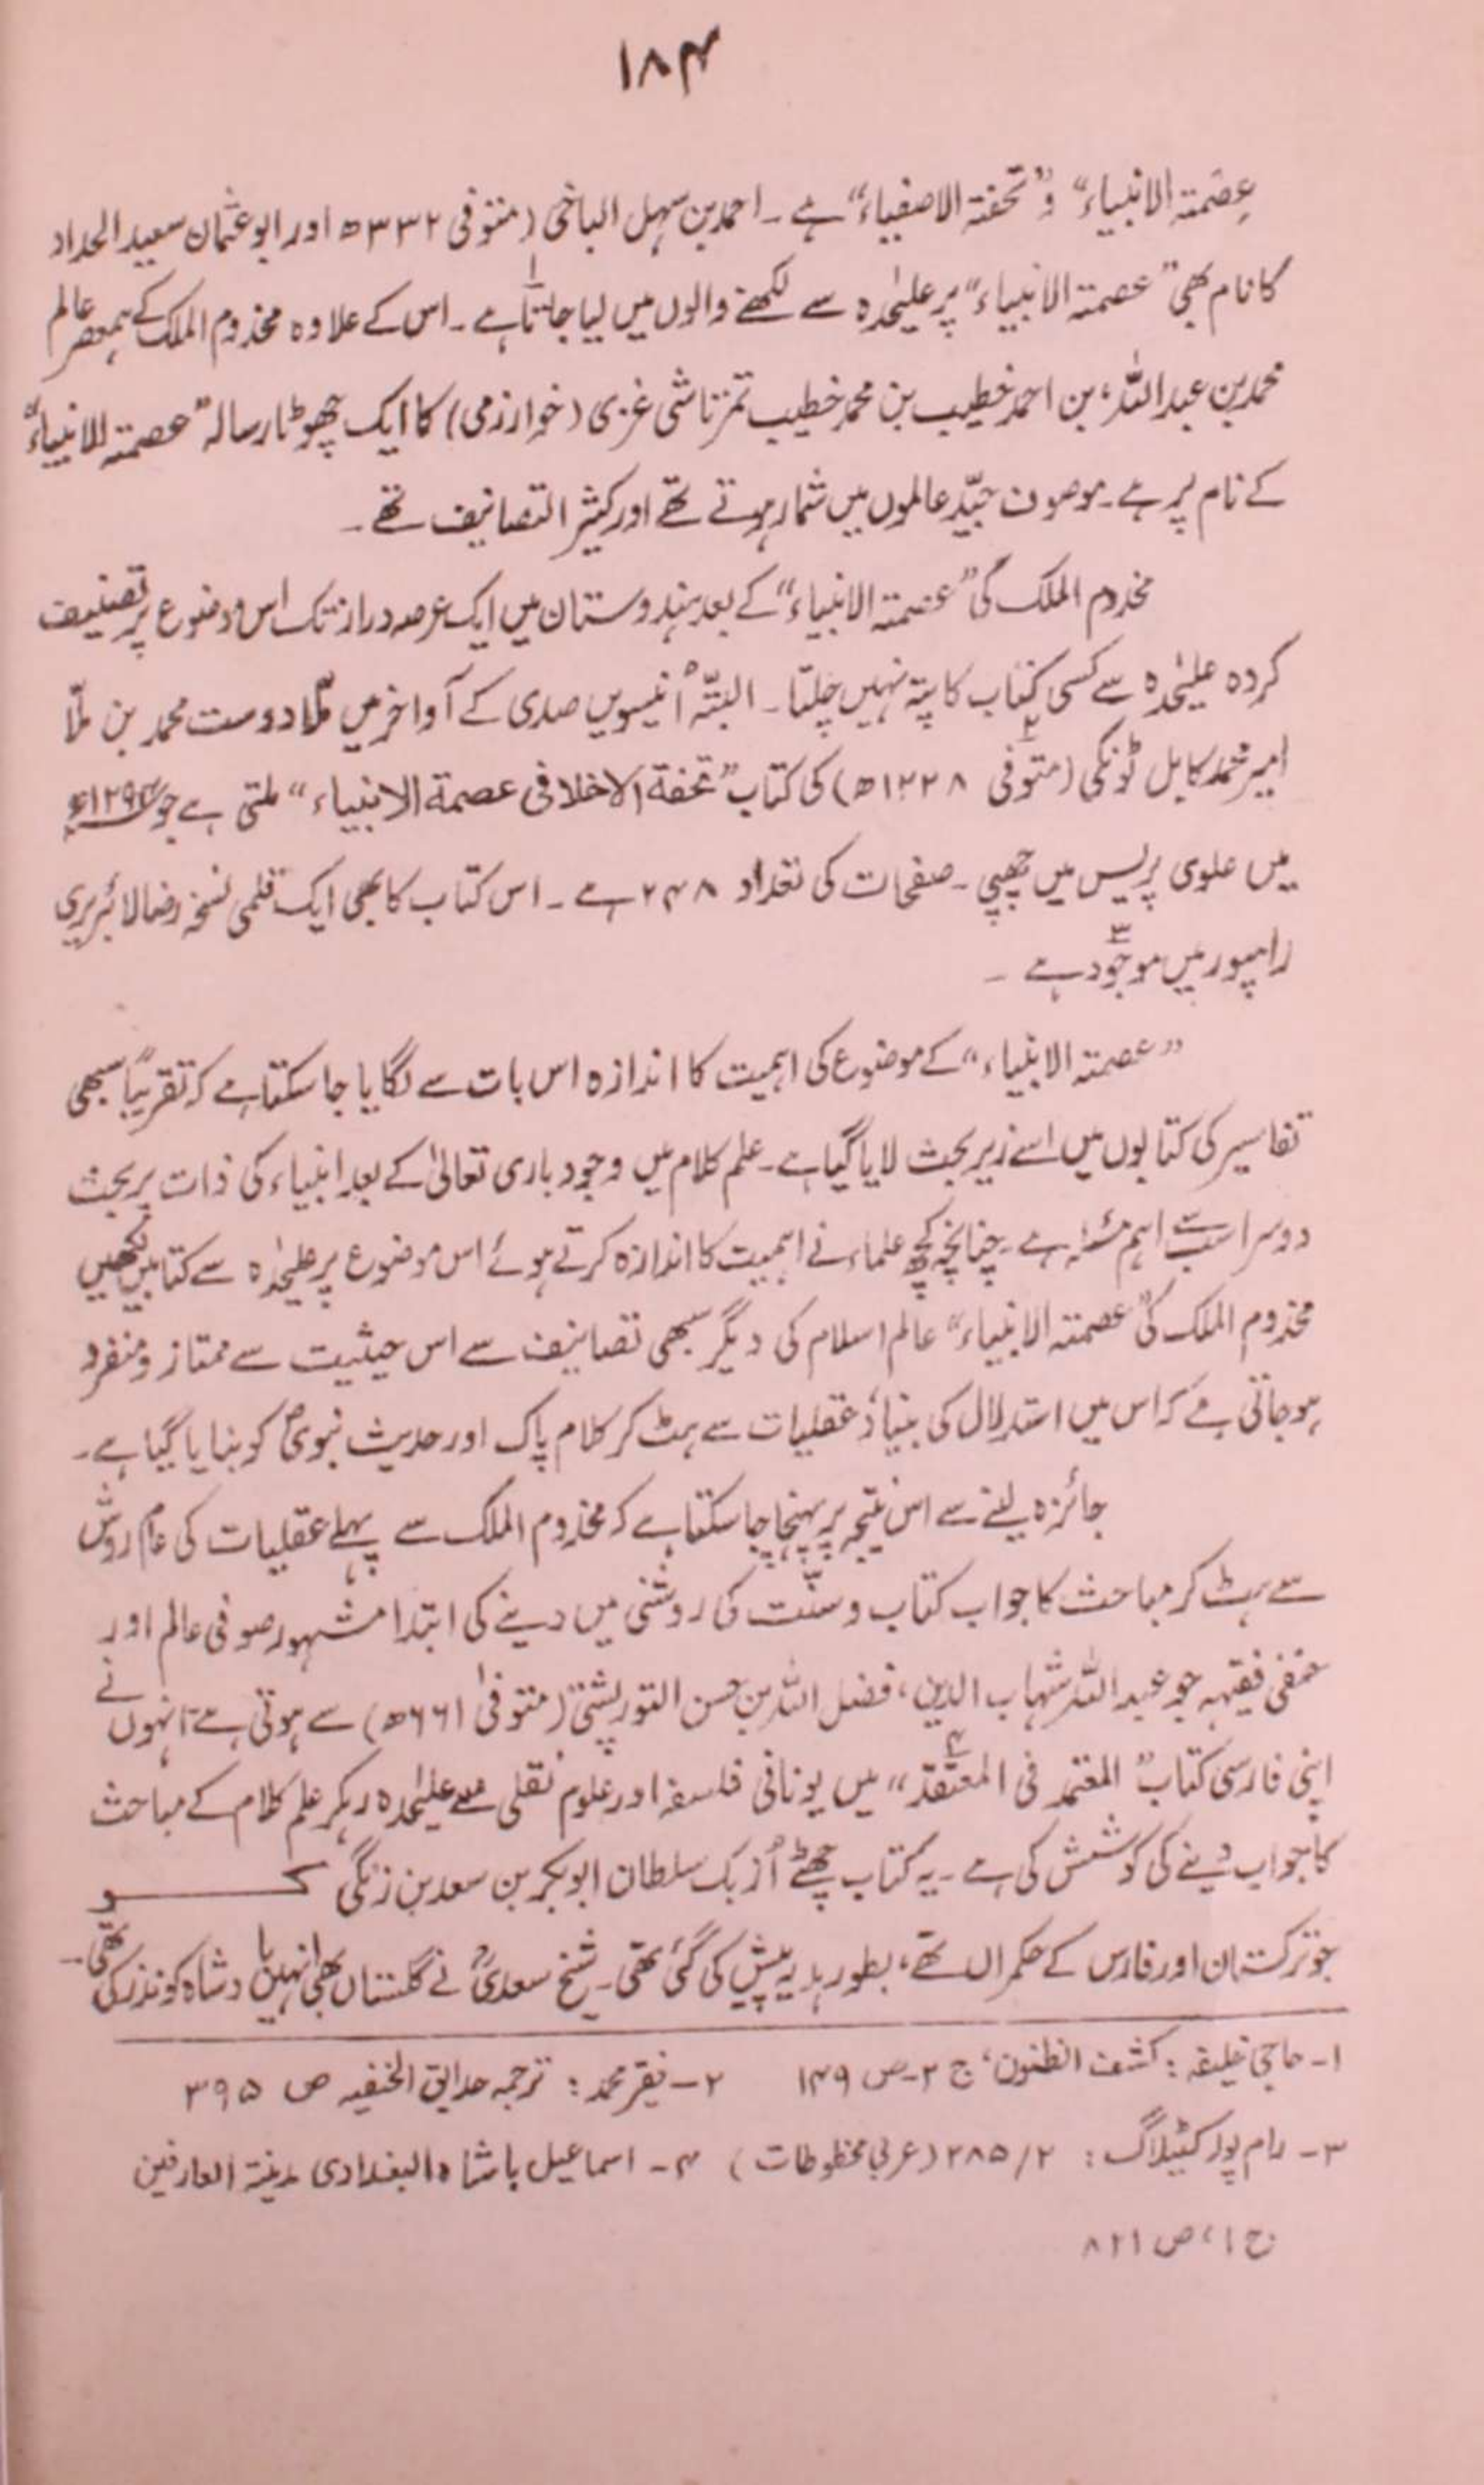 ۱۸۴
عصمتہ الانبیاء“ و ”تحفتہ الاصفیاء“ ہے ۔ احمد بن سہل الباخی (متوفی ۳۳۲ھ اور ابو عثمان سعید الحداد
کا نام بھی ”عصمتہ الانبیاء“ پر علیٰحدہ سے لکھنے والوں میں لیا جاتا ۱ ہے ۔ اس کے علاوہ مخدوم الملک کے ہمعصر عالم
محمد بن عبداللہ، بن احمد خطیب بن محمد خطیب تمرتاشی غزی (خوارزمی) کا ایک چھوٹا رسالہ ”عصمتہ للانبیاء“
کے نام پر ہے ۔ موصوف جیّد عالموں میں شمار ہوتے تھے اور کثیر التصانیف تھے ۔
مخدوم الملک کی ”عصمتہ الانبیاء“ کے بعد ہندوستان میں ایک عرصہ دراز تک اس موضوع پر تصنیف
کردہ علیٰحدہ سے کسی کتاب کا پتہ نہیں چلتا ۔ البتّہ اُنیسویں صدی کے آواخر میں ملّا دوست محمد بن ملّا
امیر محمد کابل ٹونکی (متوفی ۲ ۱۲۲۸ھ) کی کتاب ”تحفة الاخلا فی عصمة الانبیاء“ ملتی ہے جو ۱۲۹۴ء
میں علوی پریس میں چھپی ۔ صفحات کی تعداد ۲۴۸ ہے ۔ اس کتاب کا بھی ایک قلمی نسخہ رضا لائبریری
رامپور میں موجود ۳ ہے ۔
”عصمتہ الانبیاء“ کے موضوع کی اہمیت کا اندازہ اس بات سے لگایا جا سکتا ہے کہ تقریباً سبھی
تفاسیر کی کتابوں میں اسے زیر بحث لایا گیا ہے ۔ علم کلام میں وجود باری تعالیٰ کے بعد انبیاء کی ذات پر بحث
دوسرا سب سے اہم مسئلہ ہے ۔ چنانچہ کچھ علماء نے اہمیت کا اندازہ کرتے ہوئے اس موضوع پر علیٰحدہ سے کتابیں لکھیں
مخدوم الملک کی ”عصمتہ الانبیاء“ عالم اسلام کی دیگر سبھی تصانیف سے اس حیثیت سے ممتاز و منفرد
ہو جاتی ہے کہ اس میں استدلال کی بنیاد، عقلیات سے ہٹ کر کلام پاک اور حدیث نبوی ؐ کو بنایا گیا ہے ۔
جائزہ لینے سے اس نتیجہ پر پہنچا جا سکتا ہے کہ مخدوم الملک سے پہلے عقلیات کی عام روش
سے ہٹ کر مباحث کا جواب کتاب و سنّت کی روشنی میں دینے کی ابتدا مشہور صوفی عالم اور
حنفی فقیہہ جو عبداللہ شہاب الدین، فضل اللہ بن حسن التورپشتی (متوفیٰ ۶۶۱ھ) سے ہوتی ہے انہوں نے
اپنی فارسی کتاب ”المعتمد فی المعتقد ۴“ میں یونانی فلسفہ اور علوم نقلی سے علیٰحدہ رہکر علم کلام کے مباحث
کا جواب دینے کی کوشش کی ہے ۔ یہ کتاب چھٹے اُزبک سلطان ابوبکر بن سعد بن زنگی کو
جو ترکستان اور فارس کے حکمراں تھے، بطور ہدیہ پیش کی گئی تھی ۔ شیخ سعدیؒ نے گلستاں بھی انہیں بادشاہ کو نذر کی تھی ۔
۱۔ حاجی خلیفہ : کشف الظنون، ج ۲۔ ص ۱۴۹ ۲۔ فقیر محمد : ترجمہ حدایق الحنفیہ ص ۳۹۵
۳۔ رام پور کیٹیلاگ : ۲/ ۲۸۵ (عربی مخطوطات) ۴۔ اسماعیل باشاہ البغدادی ہدیتہ العارفین
ج ۱، ص ۸۲۱